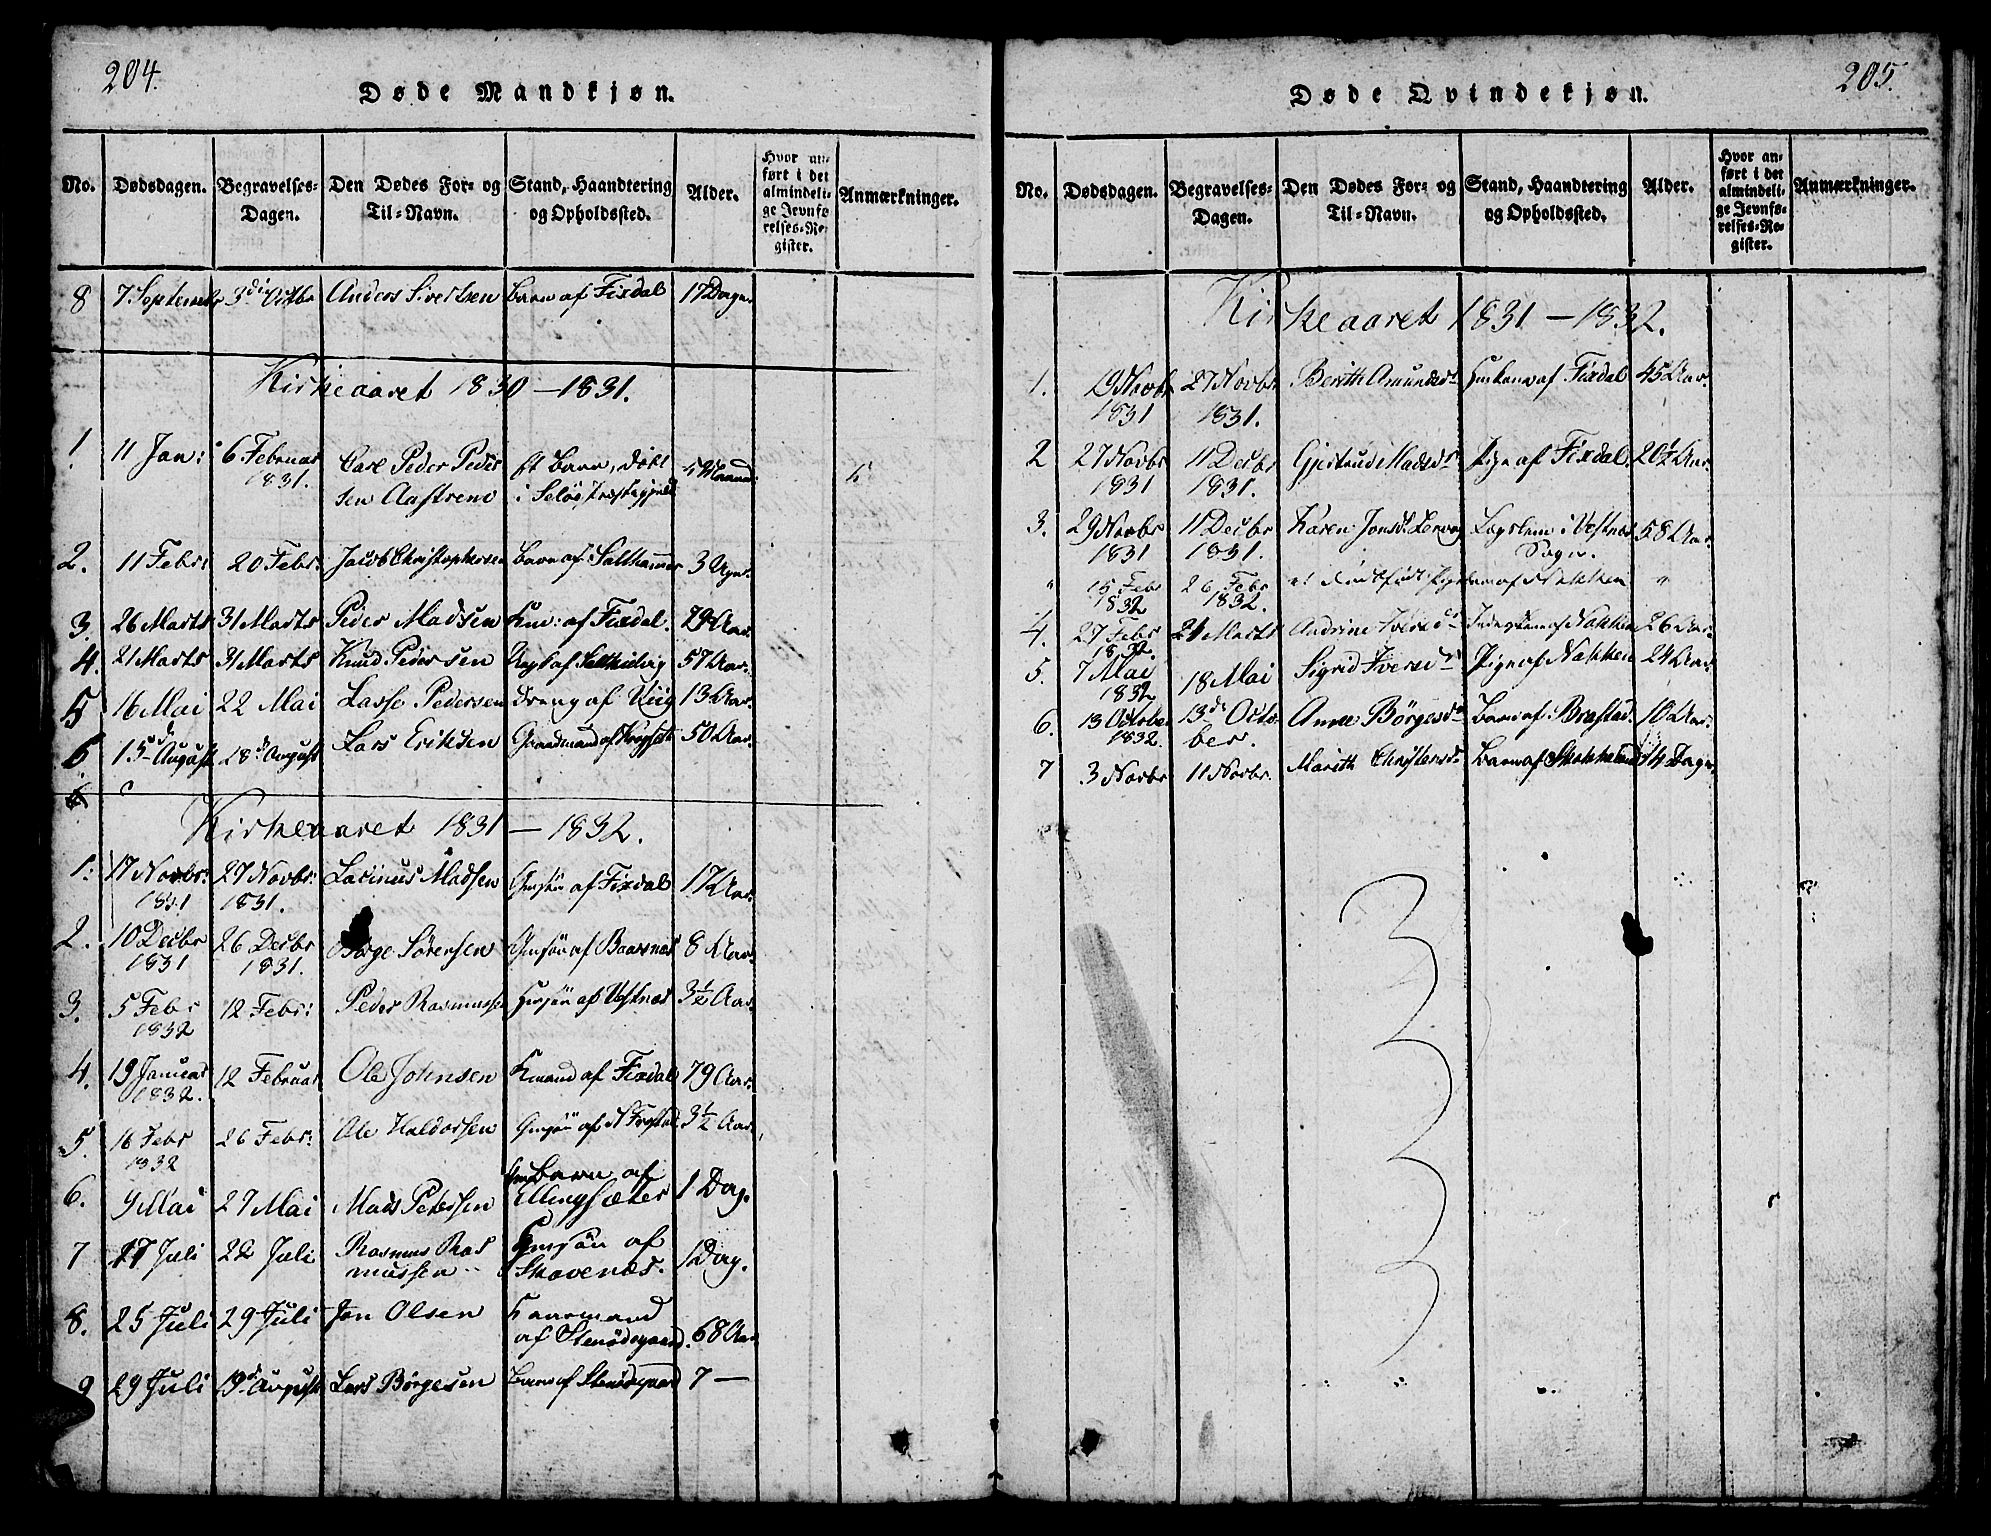 204.
Døde Mandkjøn.
No. Dødsdagen. Begravelses-Dagen. Den Dødes For- og Til-Navn. Stand, Haandtering og Opholdssted. Alder. Hvor anført i det almindelige Jevnførelses-Register. Anmærkninger.
8 7 September 3die Octbr Anders Sivertsen Barn af Fixdal 17 Dage.
Kirkeaaret 1830 — 1831.
1. 11 Jan: 6 Februar 1831. Carl Peder Pedersen Aastrem et Barn, død i Præstegjeld
2. 11 Febr: 20 Febr: Jacob Christophersen Barn af Salthammer 3 Uger.
3. 26 Marts 31 Marts Peder Madsen Km: af Fixdal. 79 Aar.
4. 21 Marts 31 Marts Knud Pedersen af 57 Aar.
5 16 Mai 22 Mai Lasse Pedersen Dreng af Viig 13 Aar.
6 15de August 28de August Lars Eriksen Gaardmand af 50 Aar.
Kirkeaaret 1831 — 1832.
1: 17 Novbr: 1831 27 Novbr: 1831. Larinus Madsen Gmsøn af Fixdal 17 Aar.
2. 10 Decbr 1831 26 Decbr 1831. Børge Sørensen Gmsøn af Baarsnæs 8 Aar.
3. 5 Febr 1832 12 Febr: Peder Rasmussen Hussøn af Vestnæs 3½ Aar.
4. 19 Januar 1832. 12 Februar Ole Johnsen Kmand af Fixdal 79 Aar.
5. 16 Febr 1832 26 Febr: Ole Haldorsen Gmsøn af 3½ Aar.
6. 9 Mai 27 Mai Mads Petersen Barn af Ellingsæter 1 Dag.
7 17 Juli 22 Juli Rasmus Rasmussen Gmsøn af Skavenæs. 1 Dag.
8. 25 Juli 29 Juli Jon Olsen Kaarmand af Stenødegaard. 68 Aar
9 29 Juli 19de August Lars Børgesen Barn af Stenødegaard 7 —
205.
Døde Qvindekjøn.
No. Dødsdagen. Begravelses-Dagen. Den Dødes For- og Til-Navn. Stand, Haandtering og Opholdssted. Alder. Hvor anført i det almindelige Jevnførelses-Register. Anmærkninger.
Kirkeaaret 1831 — 1832.
1. 19 Novbr 1831 27 Novbr 1831. Berith Amundsdr Huskone af Fixdal 45 Aar.
2 27 Novbr 1831 11 Decbr 1831. Gjertrud Madsdr Pige af Fixdal. 20½ Aar.
3. 29 Novbr 1831 11 Decbr 1831. Karen Jonsdr Lægslem i Vestnæs Sogn. 58 Aar.
" 15 Febr 1832 26 Febr 1832. et dødfødt Pigebarn af Nakken "
4. 27 Febr 1832. 21 Marts Andrine Iversdr af Nakken 26 Aar.
5. 7 Mai 1832 18 Mai Sigrid Iversdr Pige af Nakken 24 Aar
6. 13 October 1832. 13de October. Anne Børgesdr Barn af Brastad. 10 Aar.
7 3 Novbr 11 Novbr. Marith Christensdr Barn af 14 Dage.